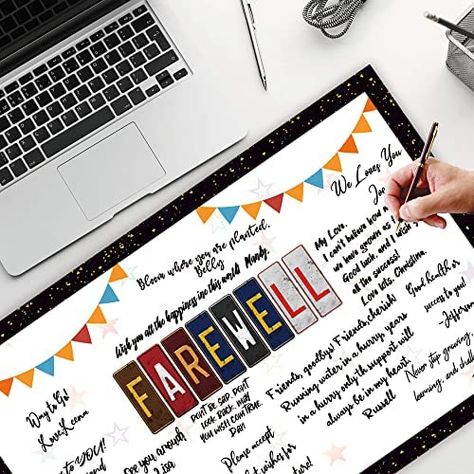 Farewell
We Loves You
Joe
Bloom where you are planted.
Belly
Wish you all the happiness in this world Mandy
My Love,
I can't believe how
we have grown as
Good luck, and I
all the success!
Love lots, Christina.
Good health &
success to you!
FAREWELL
Never stop growing,
learning, and
Friends, goodbye! Friends, cherish
Running water in a hurry, years
in a hurry only th support will
always be in my heart.
Russell
DON'T BE SAD, DON'T
LOOK BACK, MAY
YOUR WISH COME TRUE.
DAN
Way to Go!
Love,Leena
to YOU!
See you around
Please accept
wishes for